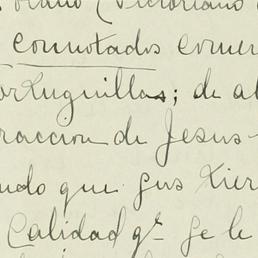 (Victoriano
connotados comer
ortuguillas; de al
raccion de Jesus
udo que sus tier
Calidad qe se le